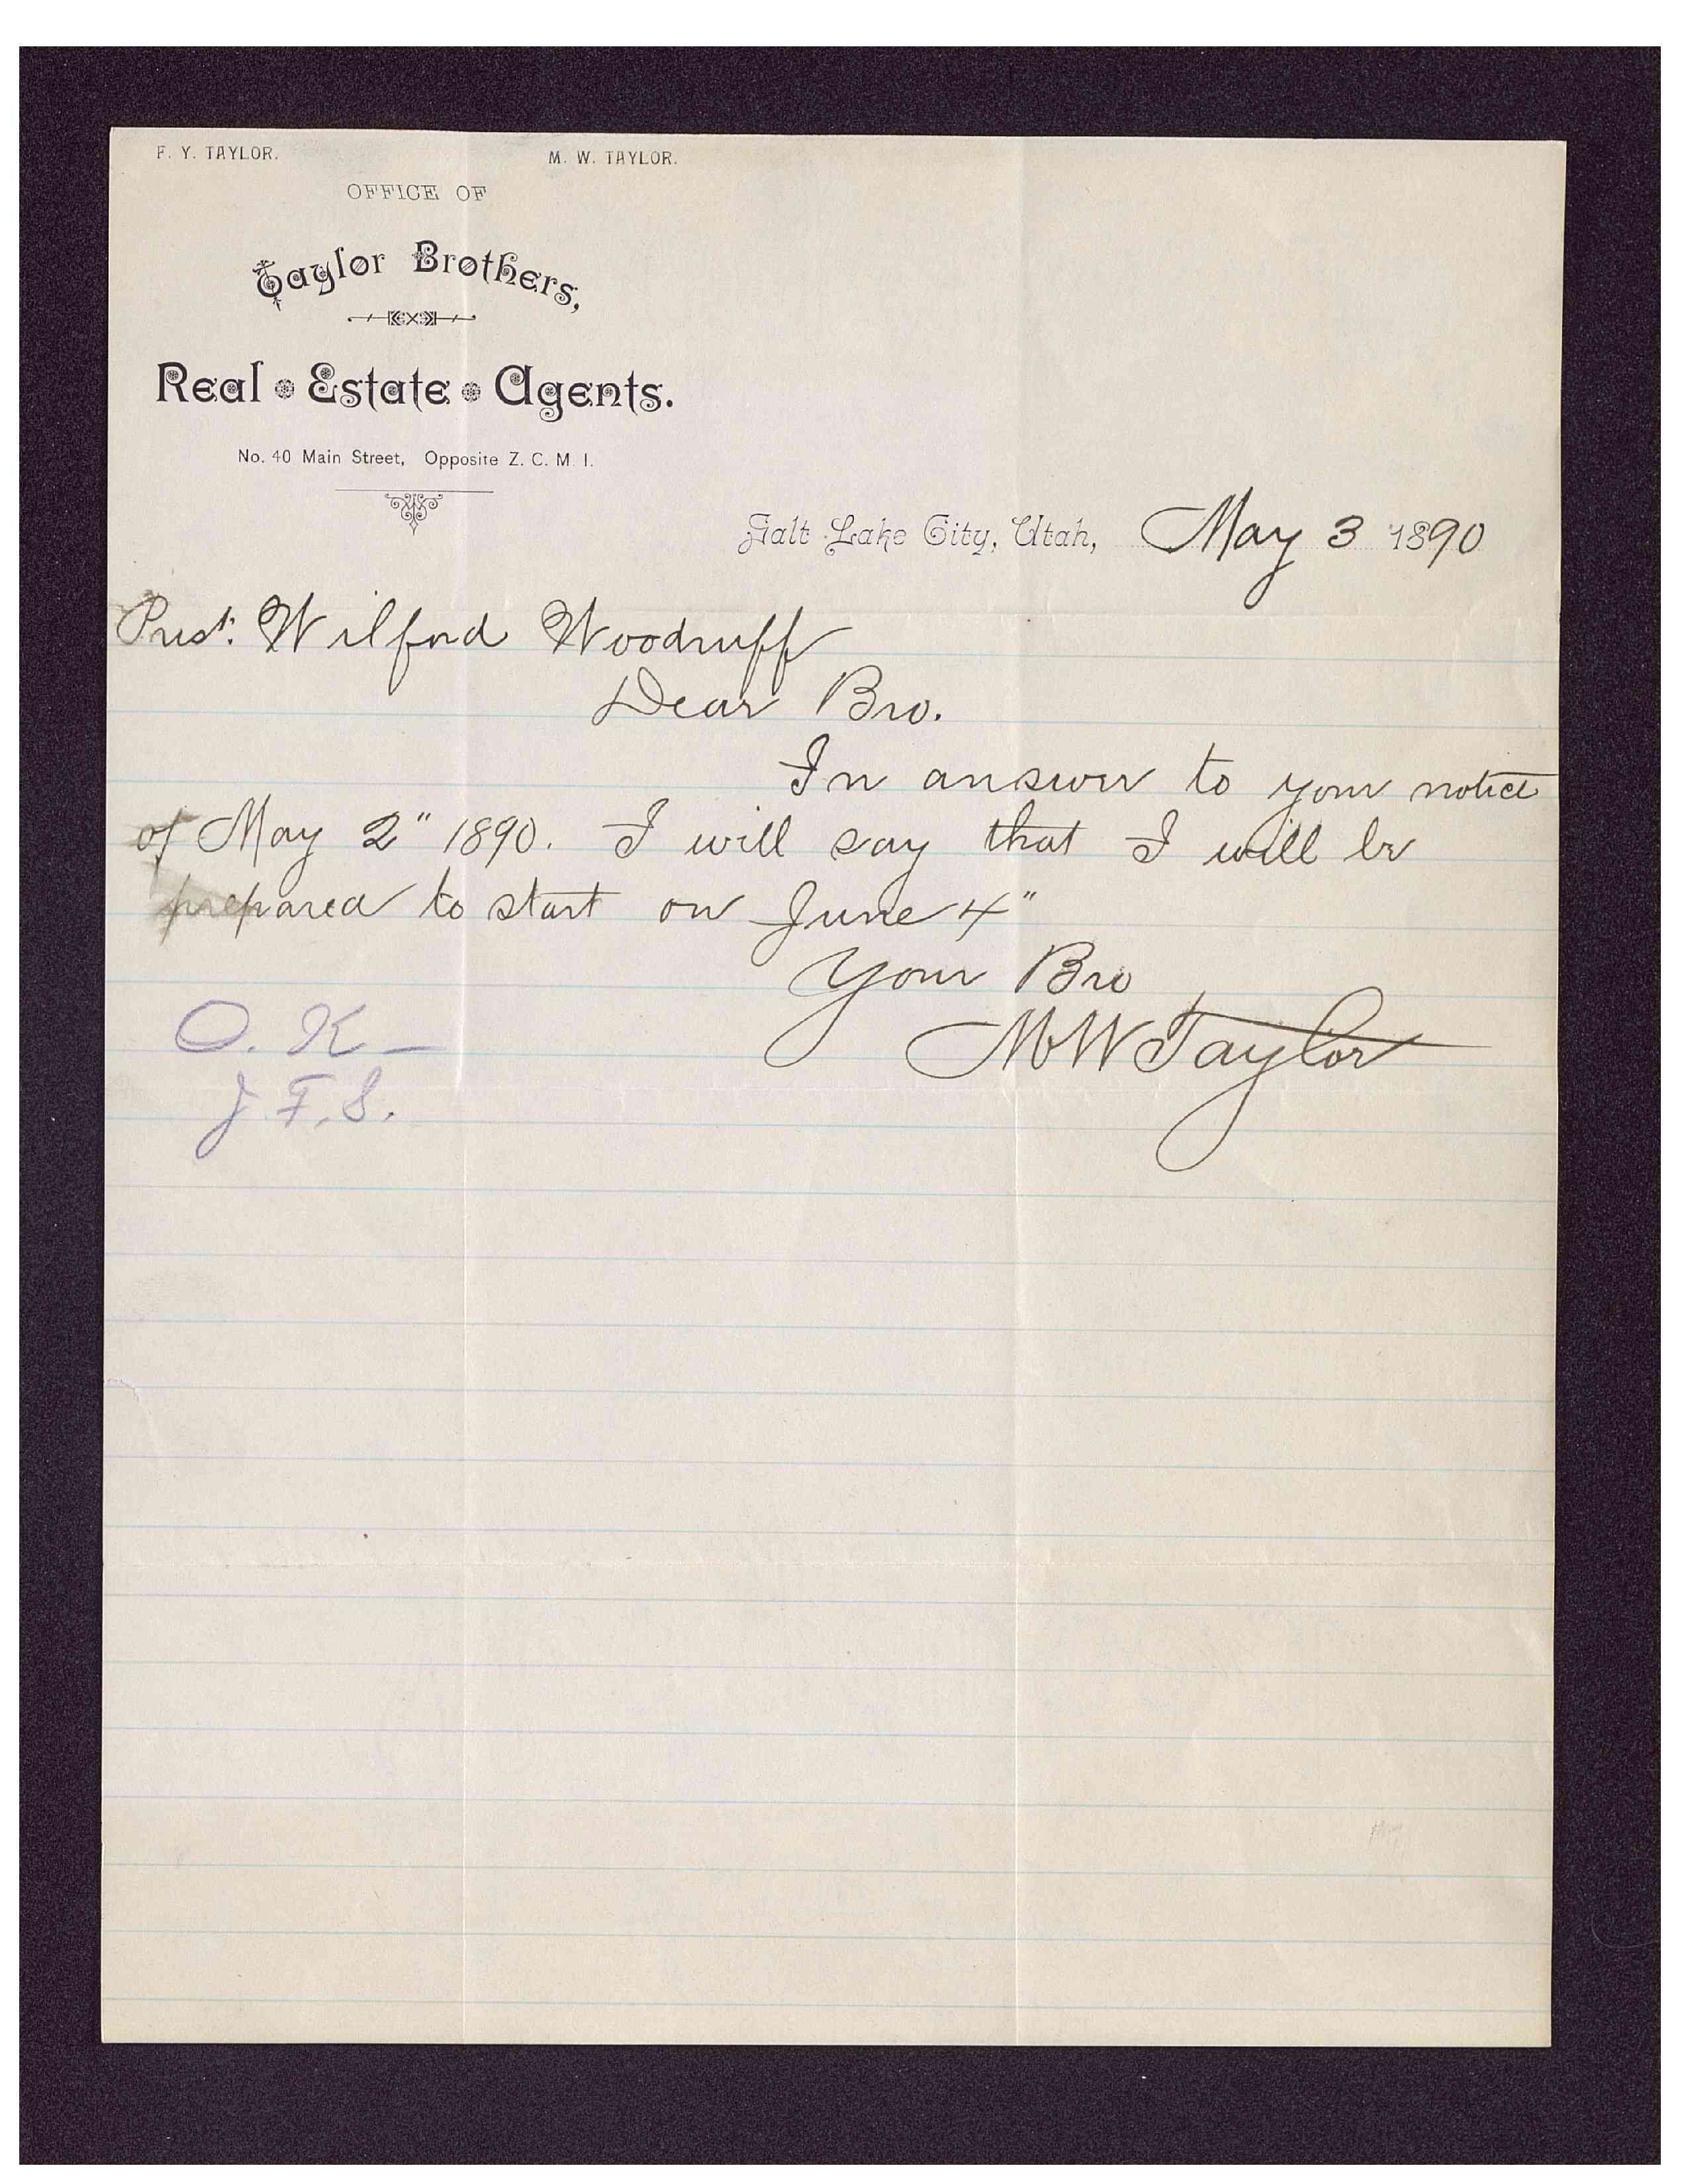 F. Y. TAYLOR. M. W. TAYLOR.
OFFICE OF
Taylor Brothers,
Real Estate Agents.
No. 40 Main Street, Opposite Z. C. M. I.
Salt Lake City, Utah, May 3 1890
Prest. Wilford Woodruff
Dear Bro.
In answer to your notice
of May 2" 1890. I will say that I will be
prepared to start on June 4"
Your Bro
M W Taylor
O. K –
J. F. S.